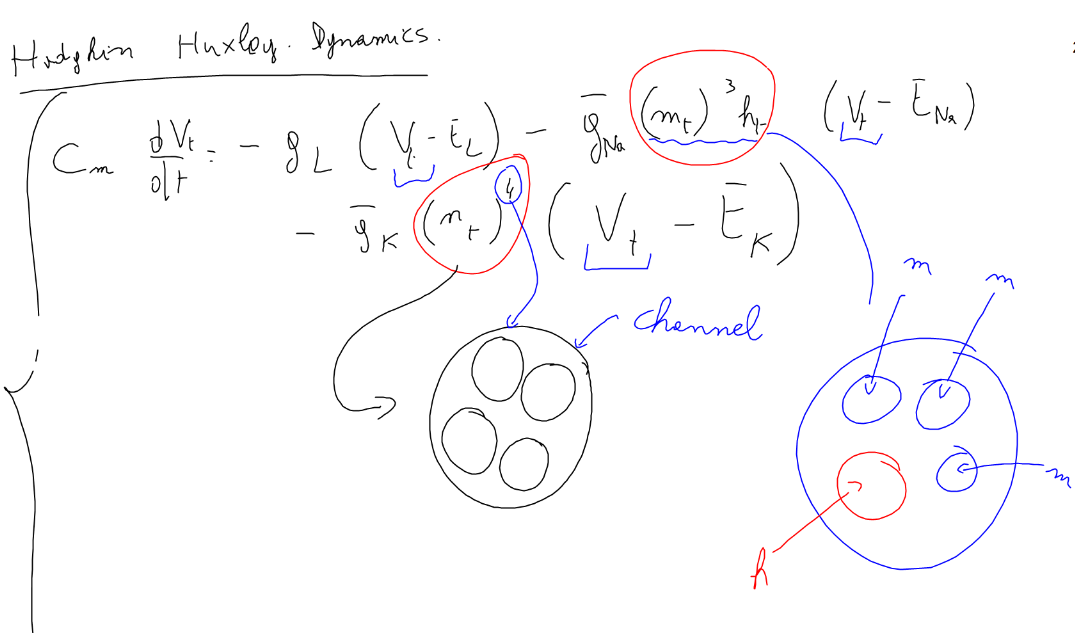 Hodgkin Huxley. Dynamics.
C_m dV_t/dt = - g_L (V_t - E_L) - \bar{g}_{Na} (m_t)^3 h_t (V_t - \bar{E}_{Na})
- \bar{g}_K (n_t)^4 (V_t - \bar{E}_K)
channel
m
m
m
h